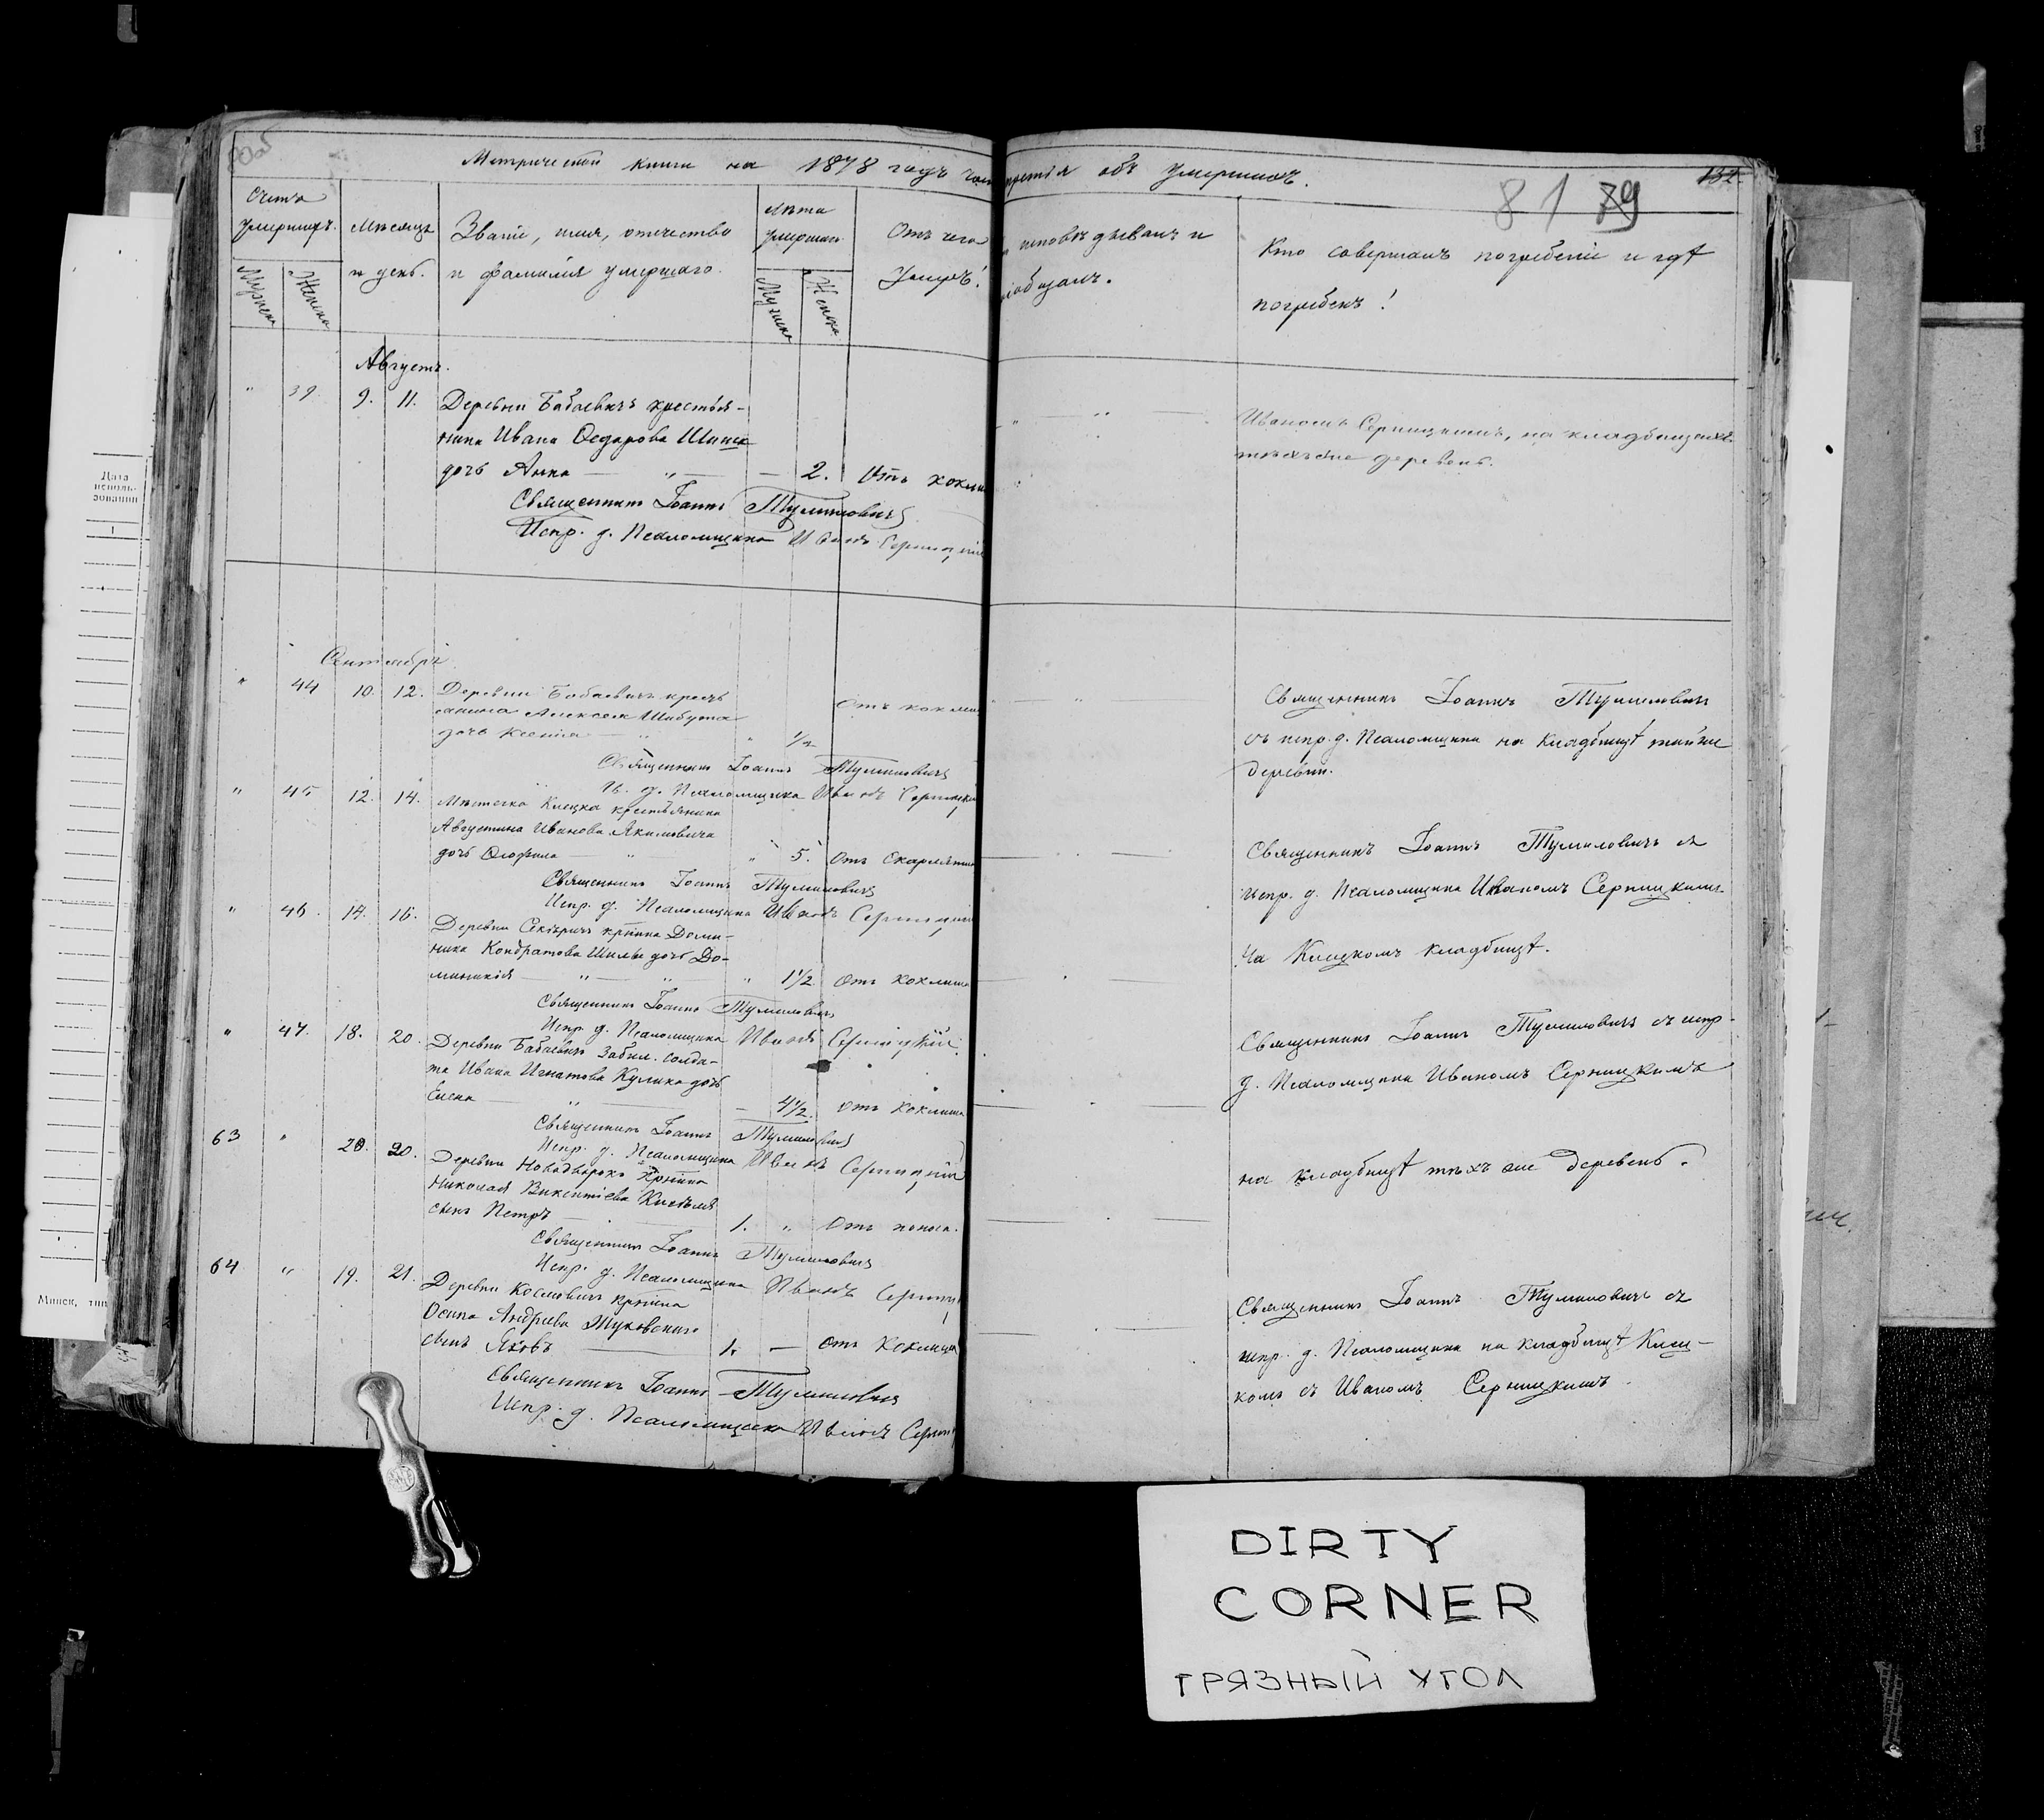 Метрической книги на 1878 годъ части третія объ умершихъ.
132.
81 79
Счетъ умершихъ.
Мужеска
Женска
Мѣсяцъ
и день.
Званіе, имя, отчество
и фамилія умершаго.
Лѣта
умершаго
Мужска
Женска
Отъ чего
умеръ!
исповѣдывалъ и
пріобщалъ.
Кто совершалъ погребеніе и гдѣ
погребенъ!
Августъ.
" 39. 9. 11. Деревни Бабаевичъ крестья-
нина Ивана Ѳедорова Шашка
дочь Анна — " — — 2. Отъ коклюша
Священникъ Іоаннъ Тумиловичъ
Испр. д. Псаломщика Иванъ Серницкій
Иваномъ Серницкимъ, на кладбищахъ
тѣхъ же деревень.
Сентябрь
" 44 10. 12. Деревни Бабаевичъ крест
янина Алексея Шибута
дочь Ксенія — " " 1/2 Отъ коклюша
Священникъ Іоаннъ Тумиловичъ
Ис. д. Псаломщика Иванъ Серницкій
Священникъ Іоаннъ Тумиловичъ
съ испр. д. Псаломщика на кладбищѣ той же
деревни.
" 45 12. 14. Мѣстечка Клецка крестьянина
Августина Иванова Якимовича
дочь Юзефина — " " 5. Отъ Скарлятины
Священникъ Іоаннъ Тумиловичъ
Испр. д. Псаломщика Иванъ Серницкій
Священникъ Іоаннъ Тумиловичъ съ
испр. д. Псаломщика Иваномъ Серницкимъ
На Клецкомъ кладбищѣ.
" 46. 14. 16. Деревни Секеричъ крѣнина Доми-
ника Кондратова Шилы дочь До-
миникія — " " " 1 1/2 Отъ коклюша
Священникъ Іоаннъ Тумиловичъ
Испр. д. Псаломщика Иванъ Серницкій
Священникъ Іоаннъ Тумиловичъ съ испр.
д. Псаломщика Иваномъ Серницкимъ
" 47. 18. 20. Деревни Бабаевичъ Забил. солда-
та Ивана Игнатова Кулика дочь
Елена — " — — 4 1/2. Отъ коклюша
Священникъ Іоаннъ Тумиловичъ
Испр. д. Псаломщика Иванъ Серницкій
на кладбищѣ тѣхъ же деревень.
63 " 20. Деревни Новодворокъ крѣнина
Николая Викентіева Киселя
сынъ Петръ — 1. " Отъ поноса.
Священникъ Іоаннъ Тумиловичъ
Испр. д. Псаломщика Иванъ Серницкій
64 " 19. 21. Деревни Космовичъ крѣнина
Осипа Андреева Жуковскаго
сынъ Яковъ — 1. — Отъ коклюша
Священникъ Іоаннъ Тумиловичъ
Испр. д. Псаломщика Иванъ Серницкій
Священникъ Іоаннъ Тумиловичъ съ
испр. д. Псаломщика на кладбищѣ Клец-
комъ съ Иваномъ Серницкимъ.
Дата
исполь-
зования
1
Минск, тип
DIRTY
CORNER
ГРЯЗНЫЙ УГОЛ